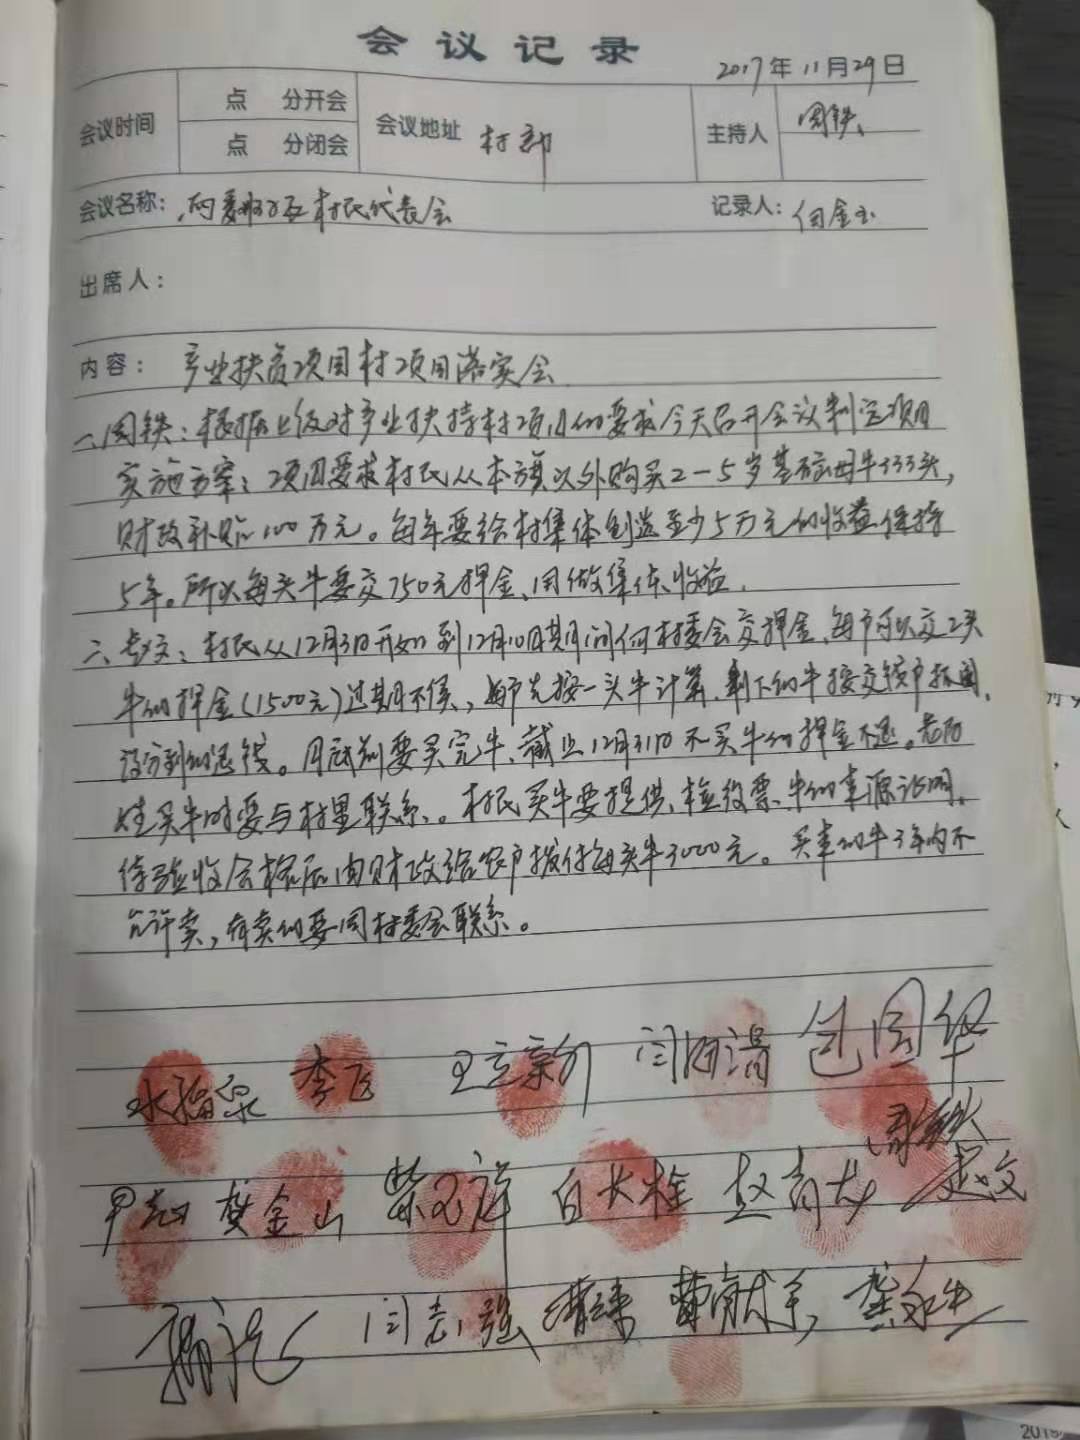 会议记录
2017年11月29日
会议时间 点 分开会 会议地址 村部 主持人 周铁
点 分闭会
会议名称: 村民代表会 记录人: 金玉
出席人:
内容: 产业扶贫项目村项目落实会
一、周铁：根据上级对产业扶持村项目的要求今天召开会议制定项目
实施方案：项目要求村民从本旗以外购买2-5岁基础母牛333头，
财政补贴100万元。每年要给村集体创造至少5万元的收益保持
5年。所以每头牛要交750元押金、用做集体收益.
二、赵文：村民从12月3日开始到12月10日期间向村委会交押金、每户可以交2头
牛的押金(1500元)过期不候，每户先按一头牛计算、剩下的牛按交钱户抓阄、
没分到的退钱。月底前要买完牛、截止12月31日不买牛的押金不退。老百
姓买牛时要与村里联系。村民买牛要提供、检疫票、牛的来源证明、
待验收合格后由财政给农户拨付每头牛3000元。买来的牛3年内不
允许卖，有卖的要同村委会联系。
水福泉 李飞 王立新 闫海清 包国华
周铁
龚金山 柴玉祥 白长栓 赵青龙 赵文
闫志强 龚永生